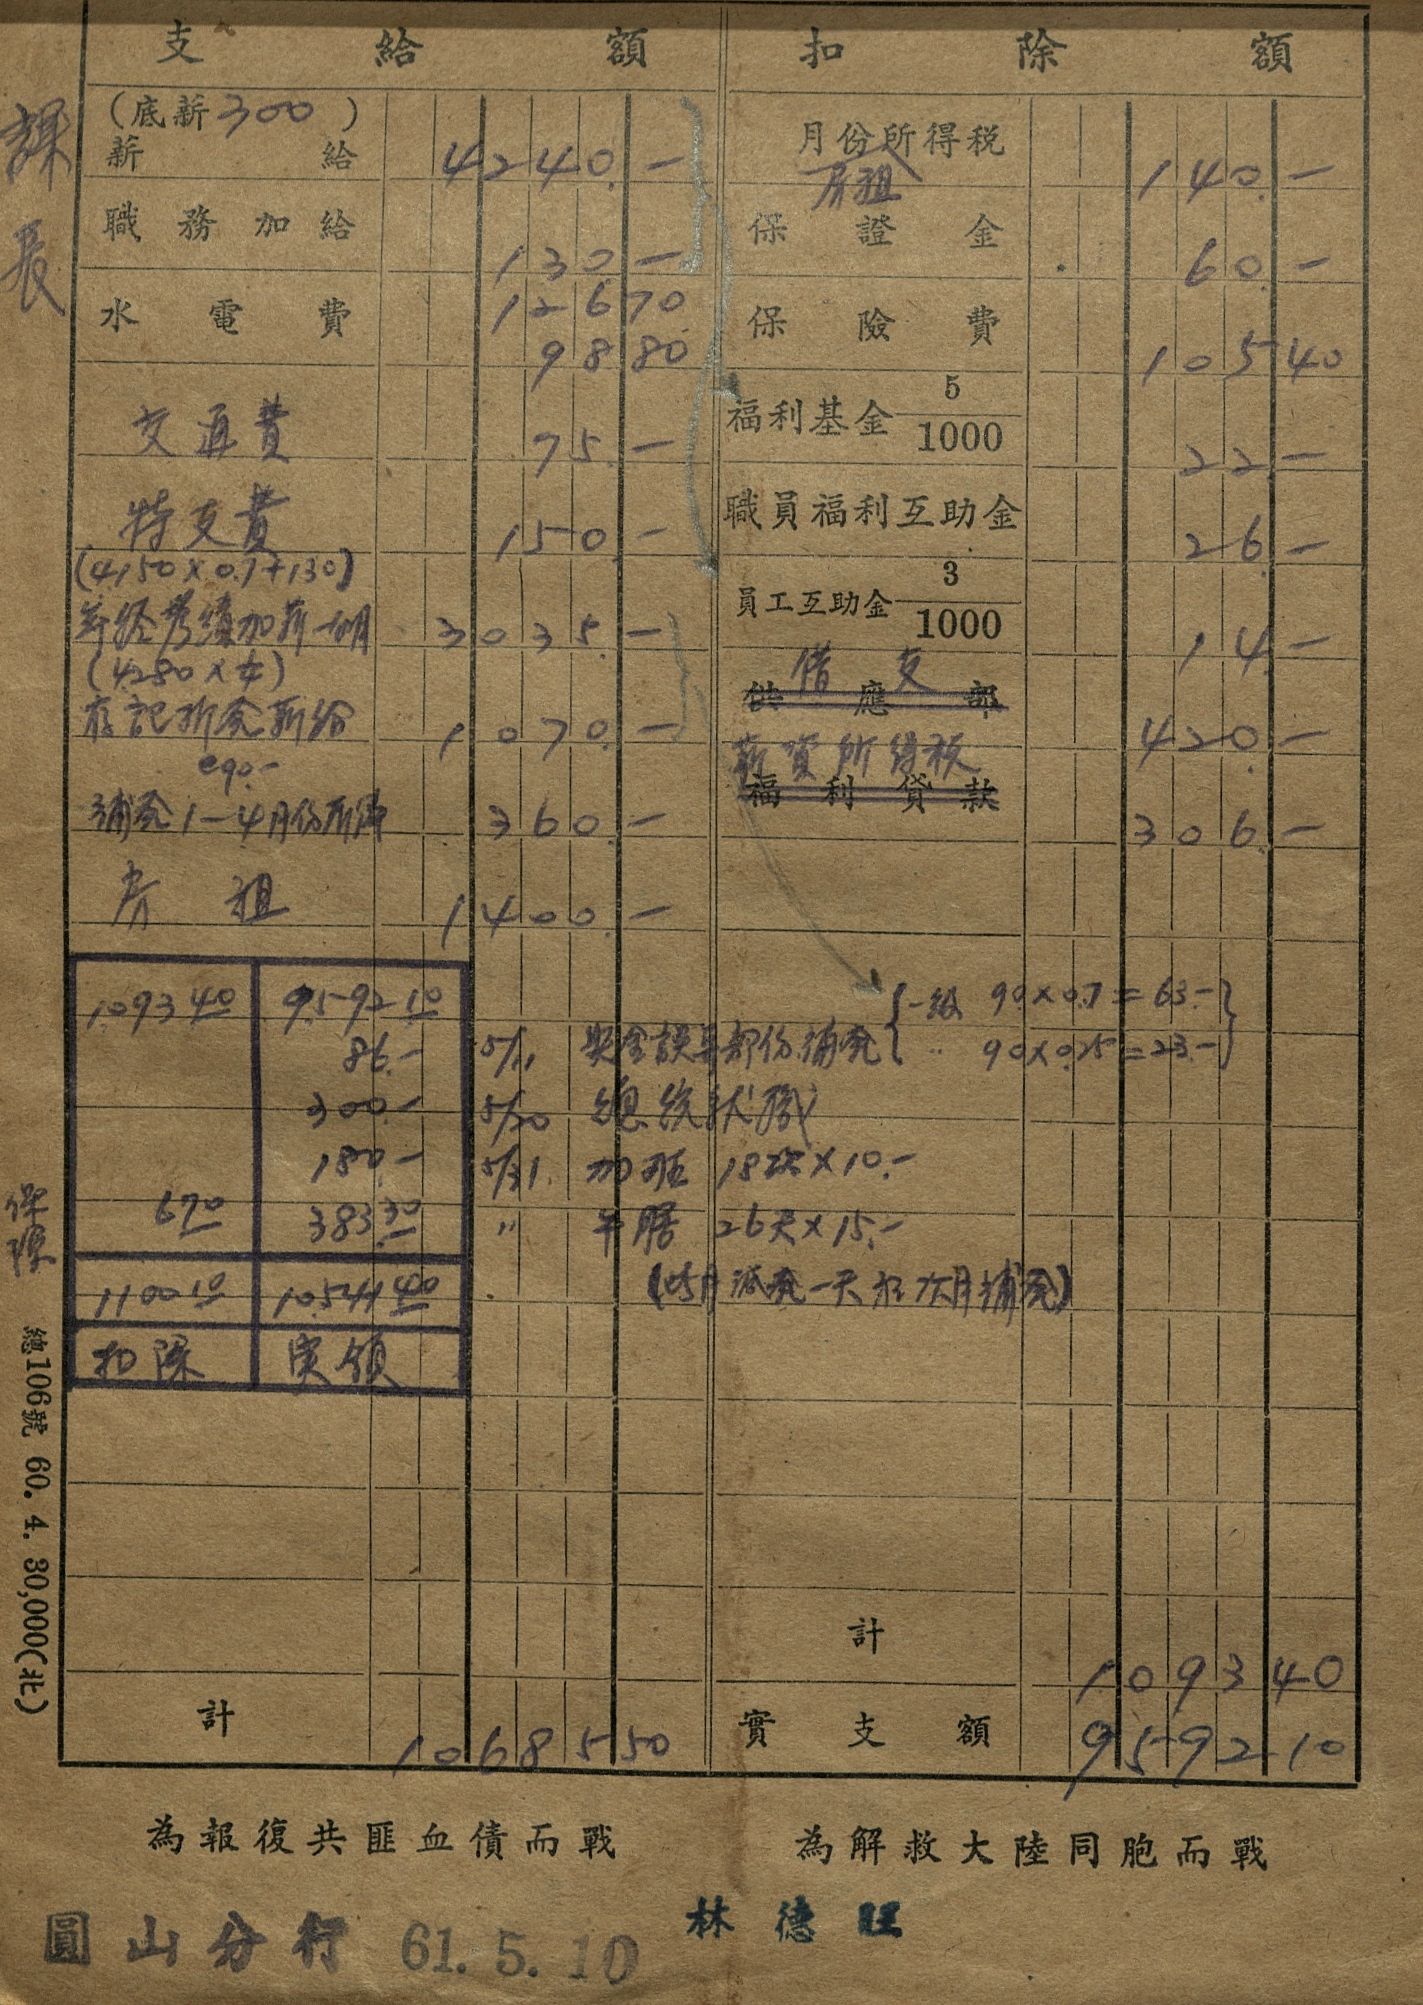 支給額
(底薪300)
薪給 4240.—
職務加給 130.—
水電費 126 70
98 80
交通費 75.—
特支費 150.—
(4,150×0.7+130)
年終考績加薪一個月 3035.—
(4280×¼)
存記折發薪給 1070.—
@90.—
補發1-4月份所得 360.—
房租 1400.—
計 10685 50
扣除額
月份所得稅 140.—
房租
保證金 60.—
保險費 105 40
福利基金 5/1000 22.—
職員福利互助金 26.—
員工互助金 3/1000 14.—
借支
供應部 420.—
薪資所得稅
福利貸款 306.—
計 1093 40
實支額 9592 10
1,093 40 9,592 10
86.— 5/11 獎金誤算部份補發 {一級 90×0.7=63.—
〃 90×0.25=23.—}
300.— 5/20 總統就職
180.— 5/31. 加班 18次×10.—
6 70 383.30 〃 午膳 26天×15.—
(此5月減發一天於次月補發)
1100 10 10,541 40
扣除 実領
課長
保險
總106號 60. 4. 30,000(北)
為報復共匪血債而戰
為解救大陸同胞而戰
圓山分行 61. 5. 10
林德旺